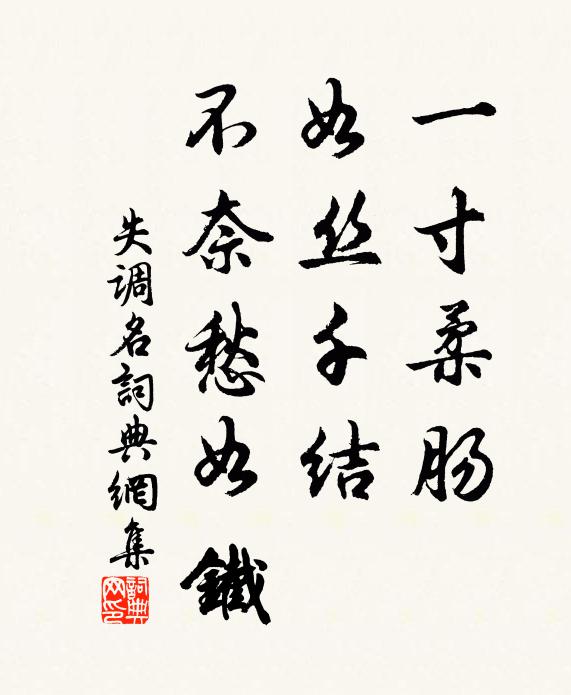 一寸柔肠
如丝千结
不奈愁如鐵
失调名詞典網集
詞典网印